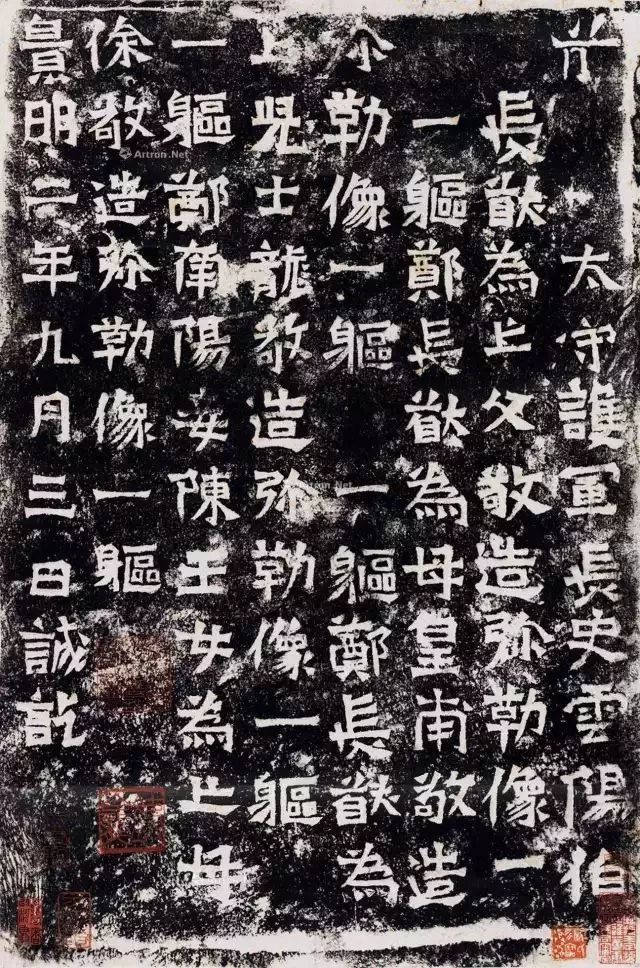 太守護軍長史雲陽伯
長猷為亡父敬造弥勒像一
一軀鄭長猷為母皇甫敬造
勒像一軀 一軀鄭長猷為
亡兒士龍敬造弥勒像一軀
一軀鄭南陽妾陳玉女為亡母
徐敬造弥勒像一軀
景明二年九月三日誡訖
Artron.Net